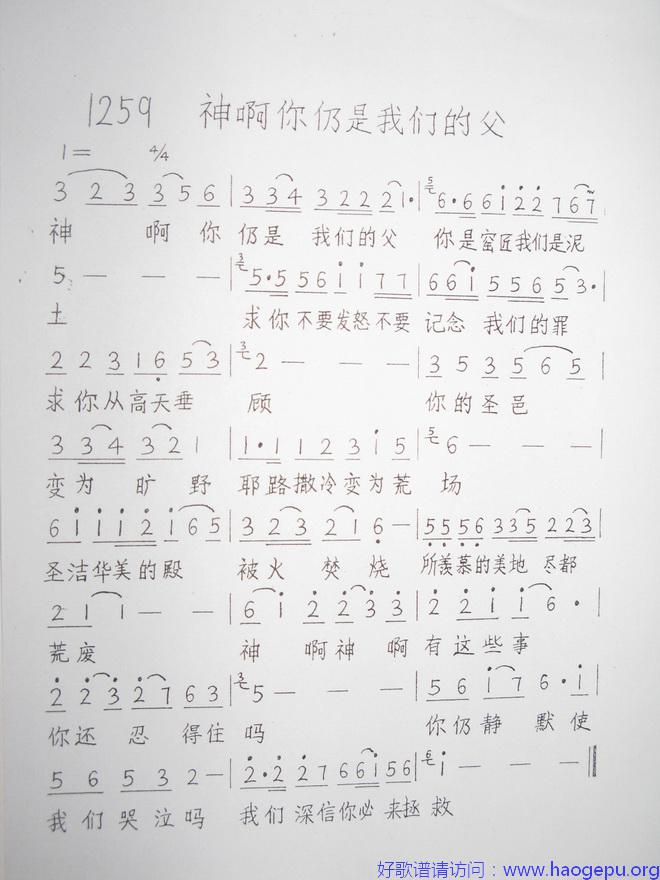 1259 神啊你仍是我们的父
1= 4/4
3 2 3 3 5 6 | 3 3 4 3 2 2 2 1· | 6·6 6 1 2 2 7 6 7
神 啊 你 仍是 我们的父 你是窑匠我们是泥
5 — — — | 5·5 5 6 1 1 7 7 | 6 6 1 5 5 6 5 3· |
土 求你不要发怒不要 记念 我们的罪
2 2 3 1 6 5 3 | 2 — — — | 3 5 3 5 6 5 |
求你从高天垂 顾 你的圣邑
3 3 4 3 2 1 | 1·1 1 2 3 1 5 | 6 — — — |
变为 旷 野 耶路撒冷变为荒 场
6 1 1 1 2 1 6 5 | 3 2 3 2 1 6 — | 5 5 5 6 3 3 5 2 2 3 |
圣洁华美的殿 被火 焚 烧 所羡慕的美地 尽都
2 1 1 — — | 6 1 2 2 3 3 | 2 2 1 1 6 · |
荒废 神 啊神 啊 有这些事
2 2 3 2 7 6 3 | 5 — — — | 5 6 1 7 6·1 |
你还 忍 得住 吗 你仍静 默使
5 6 5 3 2 — | 2·2 2 7 6 6 1 5 6 | 1 — — — ‖
我们哭泣吗 我们深信你必来拯 救
好歌谱请访问：www.haogepu.org